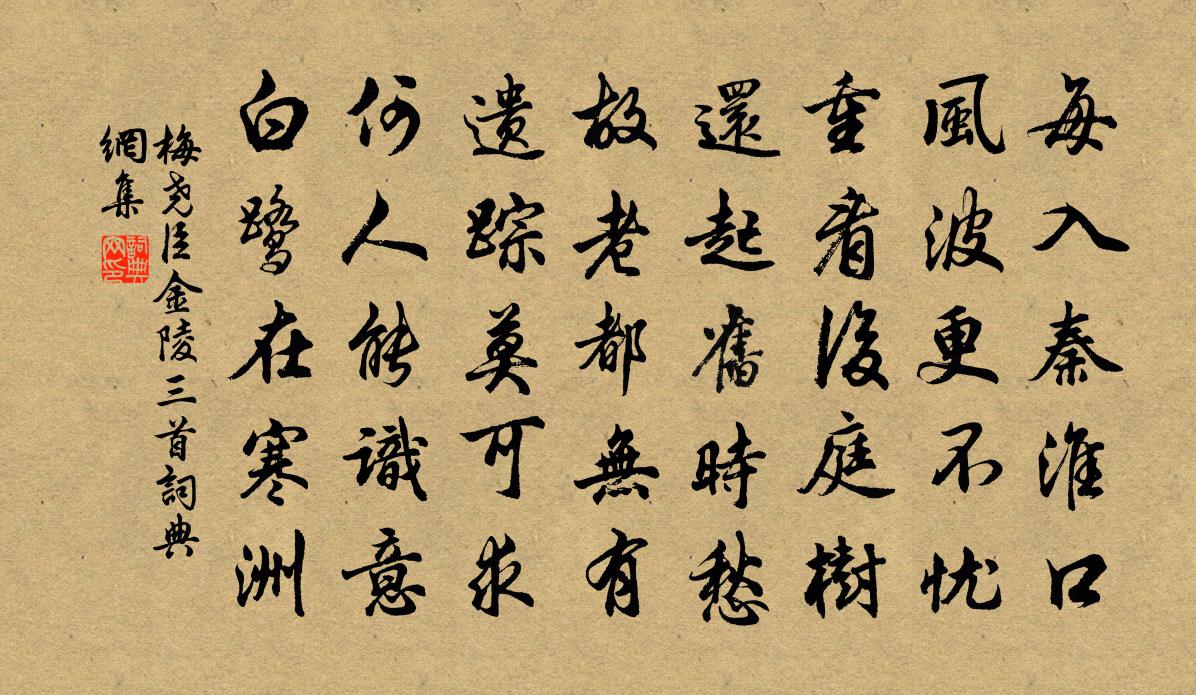 每入秦淮口
風波更不忧
重看後庭樹
還起舊時愁
故老都無有
遗踪莫可求
何人能識意
白鹭在寒洲
梅尧臣金陵三首詞典
網集
詞典网印